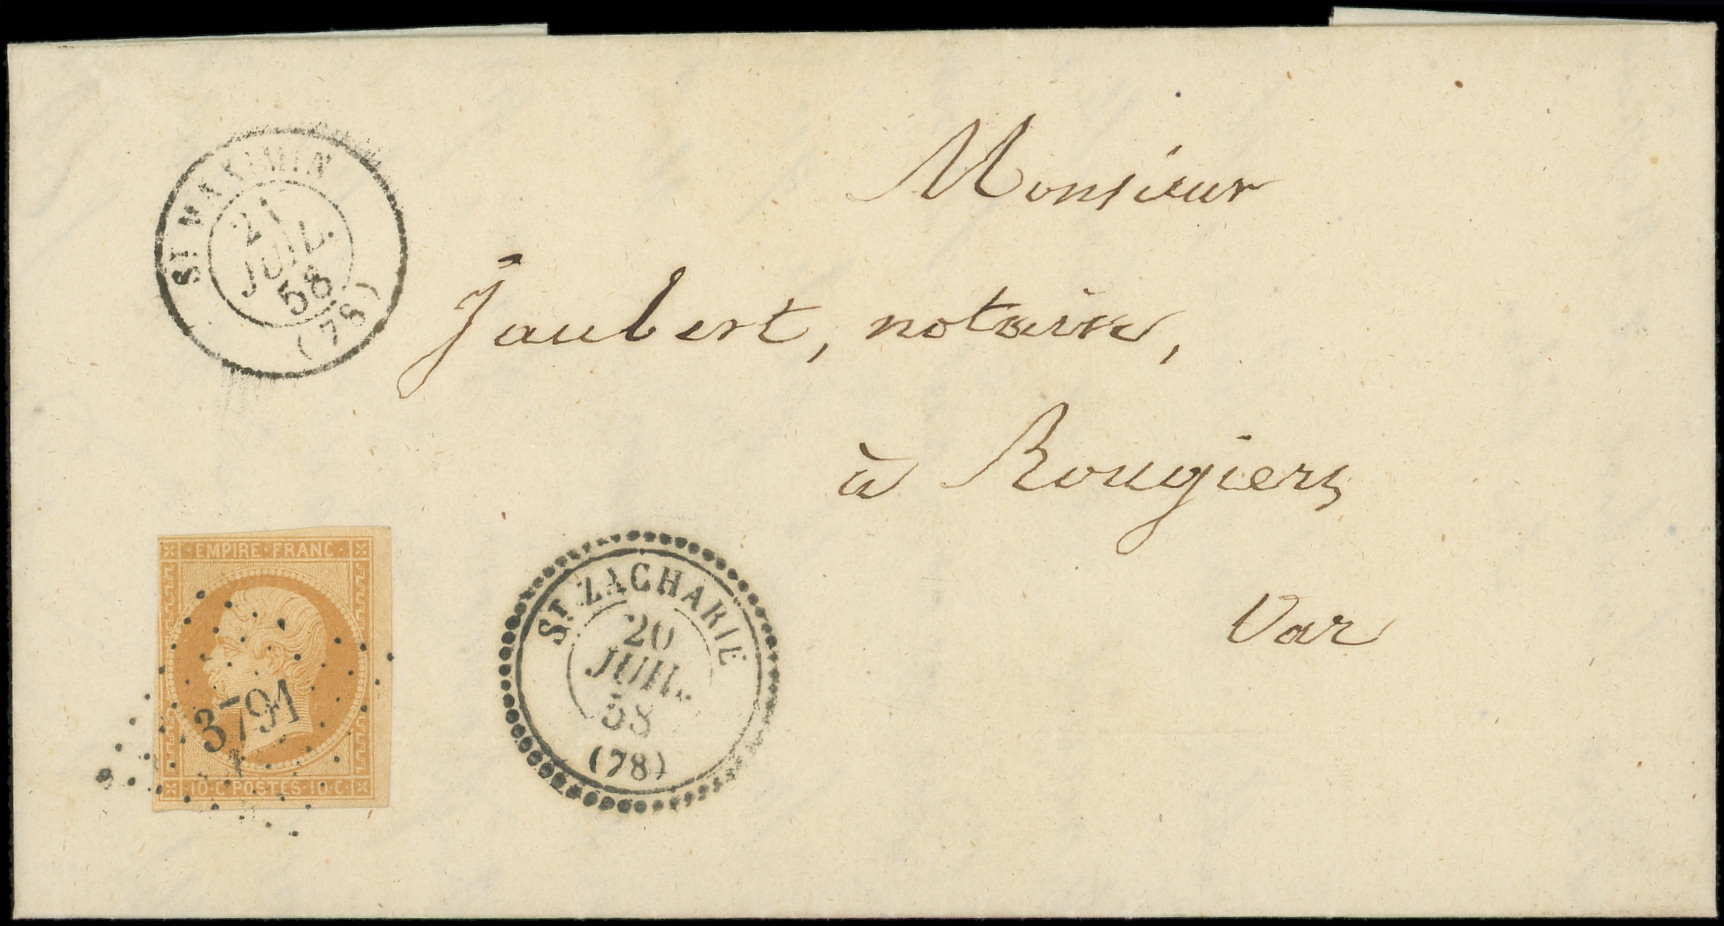 Monsieur
Jaubert, notaire,
à Rougiers
Var
ST MAXIMIN
21
JUIL.
58
(78)
EMPIRE FRANC
3791
10·C·POSTES·10·C
ST ZACHARIE
20
JUIL.
58
(78)